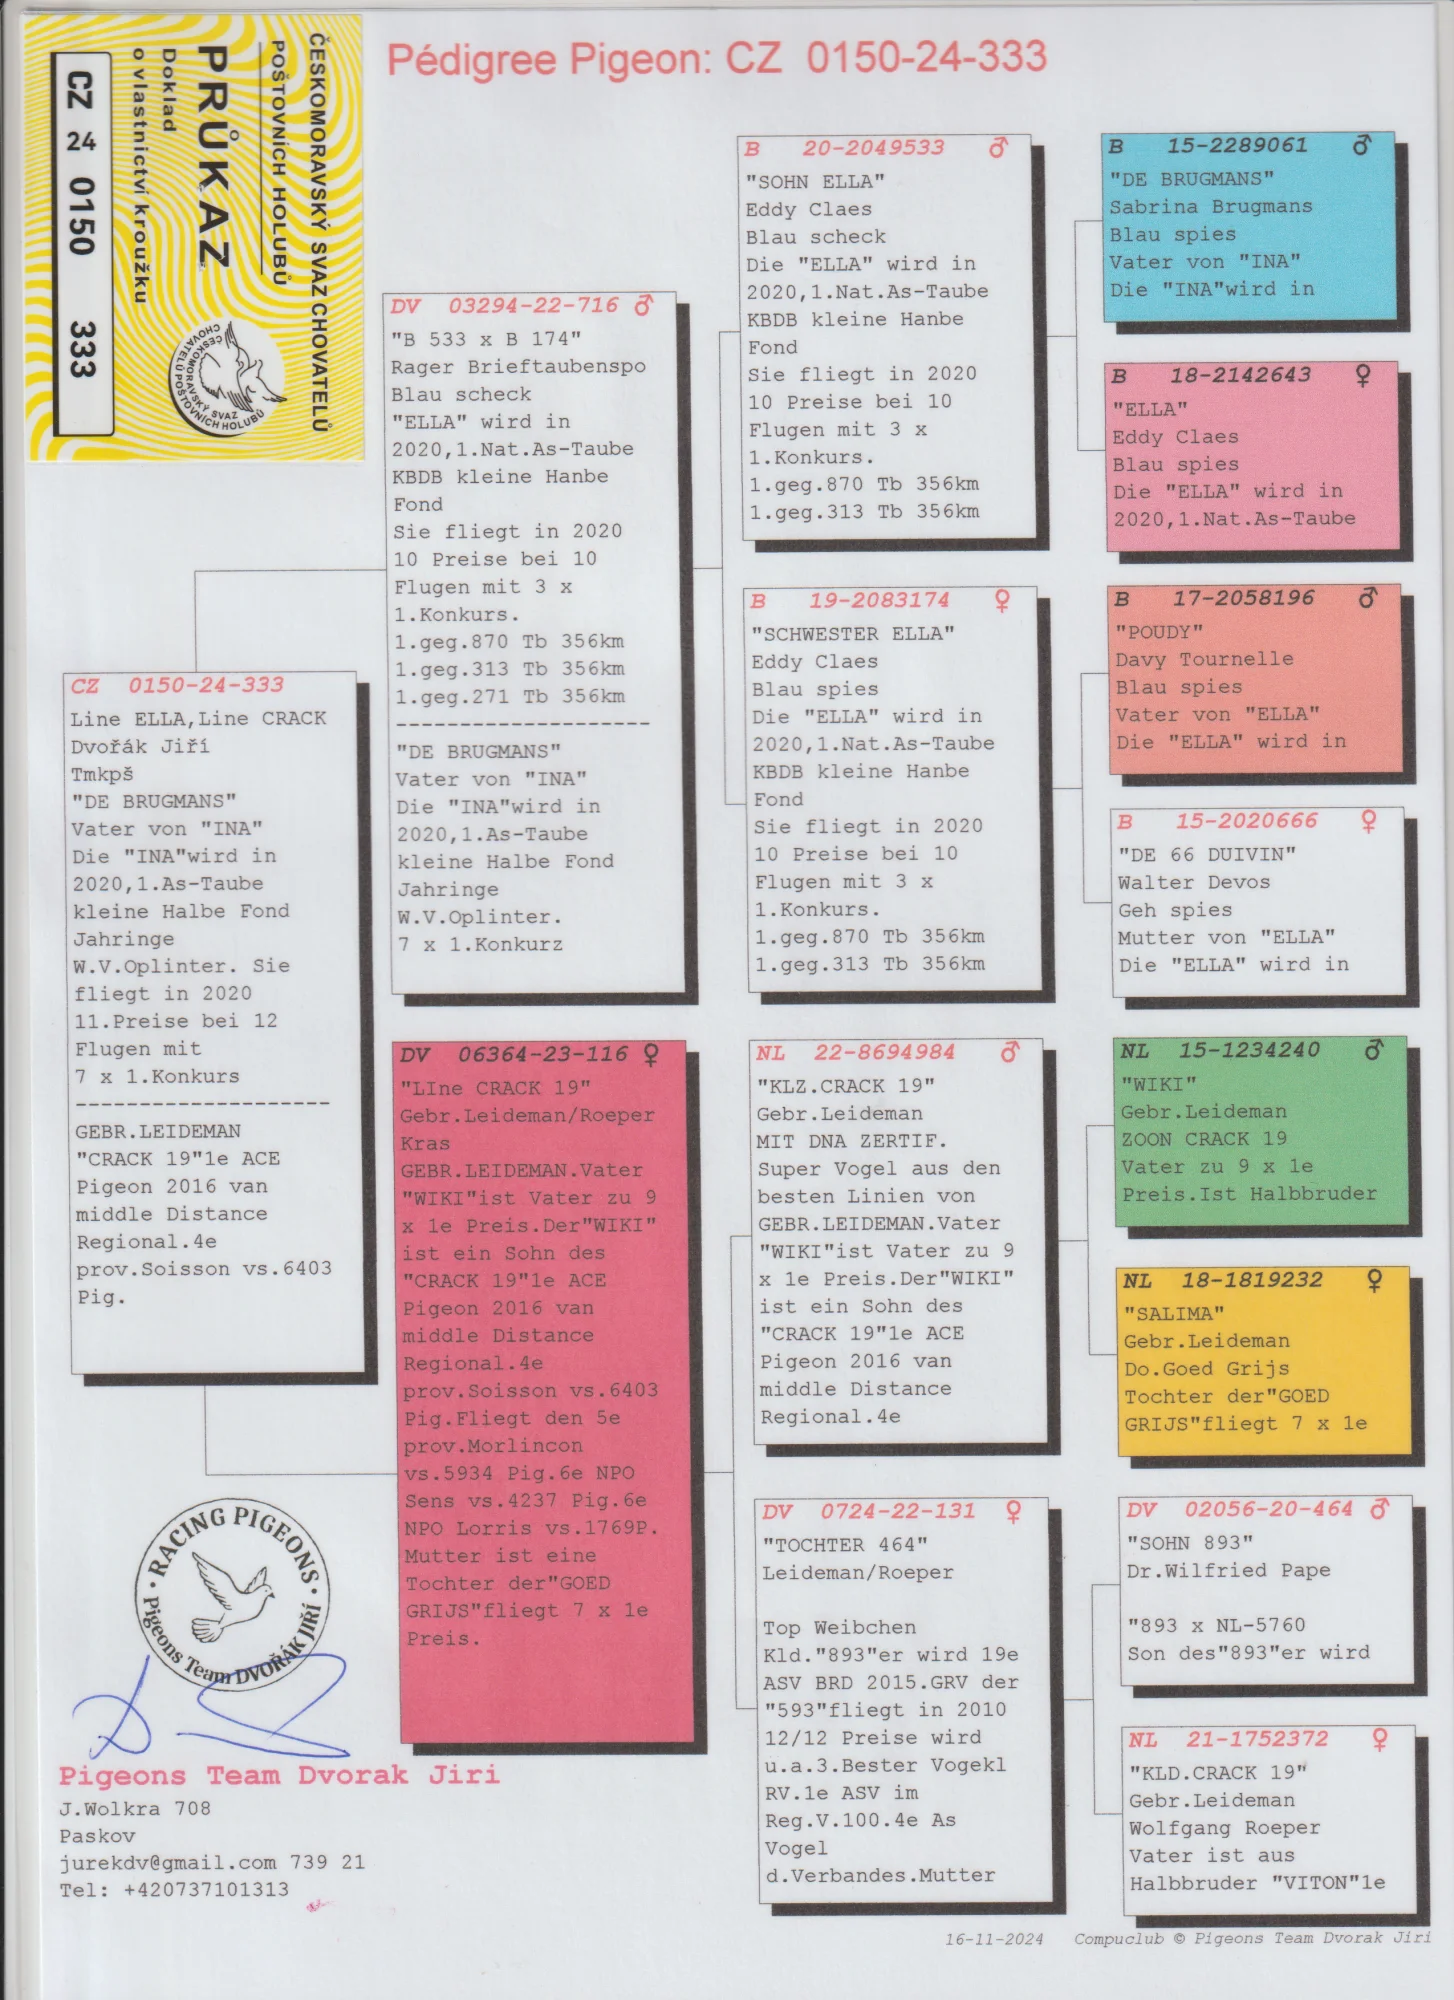 ČESKOMORAVSKÝ SVAZ CHOVATELŮ
POŠTOVNÍCH HOLUBŮ
PRŮKAZ
Doklad
o vlastnictví kroužku
CZ 24 0150 333
ČESKOMORAVSKÝ SVAZ
CHOVATELŮ POŠTOVNÍCH HOLUBŮ
Pédigree Pigeon: CZ 0150-24-333
CZ 0150-24-333
Line ELLA,Line CRACK
Dvořák Jiří
Tmkpš
"DE BRUGMANS"
Vater von "INA"
Die "INA"wird in
2020,1.As-Taube
kleine Halbe Fond
Jahringe
W.V.Oplinter. Sie
fliegt in 2020
11.Preise bei 12
Flugen mit
7 x 1.Konkurs
--------------------
GEBR.LEIDEMAN
"CRACK 19"1e ACE
Pigeon 2016 van
middle Distance
Regional.4e
prov.Soisson vs.6403
Pig.
DV 03294-22-716 ♂
"B 533 x B 174"
Rager Brieftaubenspo
Blau scheck
"ELLA" wird in
2020,1.Nat.As-Taube
KBDB kleine Hanbe
Fond
Sie fliegt in 2020
10 Preise bei 10
Flugen mit 3 x
1.Konkurs.
1.geg.870 Tb 356km
1.geg.313 Tb 356km
1.geg.271 Tb 356km
--------------------
"DE BRUGMANS"
Vater von "INA"
Die "INA"wird in
2020,1.As-Taube
kleine Halbe Fond
Jahringe
W.V.Oplinter.
7 x 1.Konkurz
DV 06364-23-116 ♀
"LIne CRACK 19"
Gebr.Leideman/Roeper
Kras
GEBR.LEIDEMAN.Vater
"WIKI"ist Vater zu 9
x 1e Preis.Der"WIKI"
ist ein Sohn des
"CRACK 19"1e ACE
Pigeon 2016 van
middle Distance
Regional.4e
prov.Soisson vs.6403
Pig.Fliegt den 5e
prov.Morlincon
vs.5934 Pig.6e NPO
Sens vs.4237 Pig.6e
NPO Lorris vs.1769P.
Mutter ist eine
Tochter der"GOED
GRIJS"fliegt 7 x 1e
Preis.
B 20-2049533 ♂
"SOHN ELLA"
Eddy Claes
Blau scheck
Die "ELLA" wird in
2020,1.Nat.As-Taube
KBDB kleine Hanbe
Fond
Sie fliegt in 2020
10 Preise bei 10
Flugen mit 3 x
1.Konkurs.
1.geg.870 Tb 356km
1.geg.313 Tb 356km
B 19-2083174 ♀
"SCHWESTER ELLA"
Eddy Claes
Blau spies
Die "ELLA" wird in
2020,1.Nat.As-Taube
KBDB kleine Hanbe
Fond
Sie fliegt in 2020
10 Preise bei 10
Flugen mit 3 x
1.Konkurs.
1.geg.870 Tb 356km
1.geg.313 Tb 356km
NL 22-8694984 ♂
"KLZ.CRACK 19"
Gebr.Leideman
MIT DNA ZERTIF.
Super Vogel aus den
besten Linien von
GEBR.LEIDEMAN.Vater
"WIKI"ist Vater zu 9
x 1e Preis.Der"WIKI"
ist ein Sohn des
"CRACK 19"1e ACE
Pigeon 2016 van
middle Distance
Regional.4e
DV 0724-22-131 ♀
"TOCHTER 464"
Leideman/Roeper
Top Weibchen
Kld."893"er wird 19e
ASV BRD 2015.GRV der
"593"fliegt in 2010
12/12 Preise wird
u.a.3.Bester Vogekl
RV.1e ASV im
Reg.V.100.4e As
Vogel
d.Verbandes.Mutter
B 15-2289061 ♂
"DE BRUGMANS"
Sabrina Brugmans
Blau spies
Vater von "INA"
Die "INA"wird in
B 18-2142643 ♀
"ELLA"
Eddy Claes
Blau spies
Die "ELLA" wird in
2020,1.Nat.As-Taube
B 17-2058196 ♂
"POUDY"
Davy Tournelle
Blau spies
Vater von "ELLA"
Die "ELLA" wird in
B 15-2020666 ♀
"DE 66 DUIVIN"
Walter Devos
Geh spies
Mutter von "ELLA"
Die "ELLA" wird in
NL 15-1234240 ♂
"WIKI"
Gebr.Leideman
ZOON CRACK 19
Vater zu 9 x 1e
Preis.Ist Halbbruder
NL 18-1819232 ♀
"SALIMA"
Gebr.Leideman
Do.Goed Grijs
Tochter der"GOED
GRIJS"fliegt 7 x 1e
DV 02056-20-464 ♂
"SOHN 893"
Dr.Wilfried Pape
"893 x NL-5760
Son des"893"er wird
NL 21-1752372 ♀
"KLD.CRACK 19"
Gebr.Leideman
Wolfgang Roeper
Vater ist aus
Halbbruder "VITON"1e
RACING PIGEONS
Pigeons Team DVOŘÁK JIŘÍ
Pigeons Team Dvorak Jiri
J.Wolkra 708
Paskov
jurekdv@gmail.com 739 21
Tel: +420737101313
16-11-2024 Compuclub © Pigeons Team Dvorak Jiri